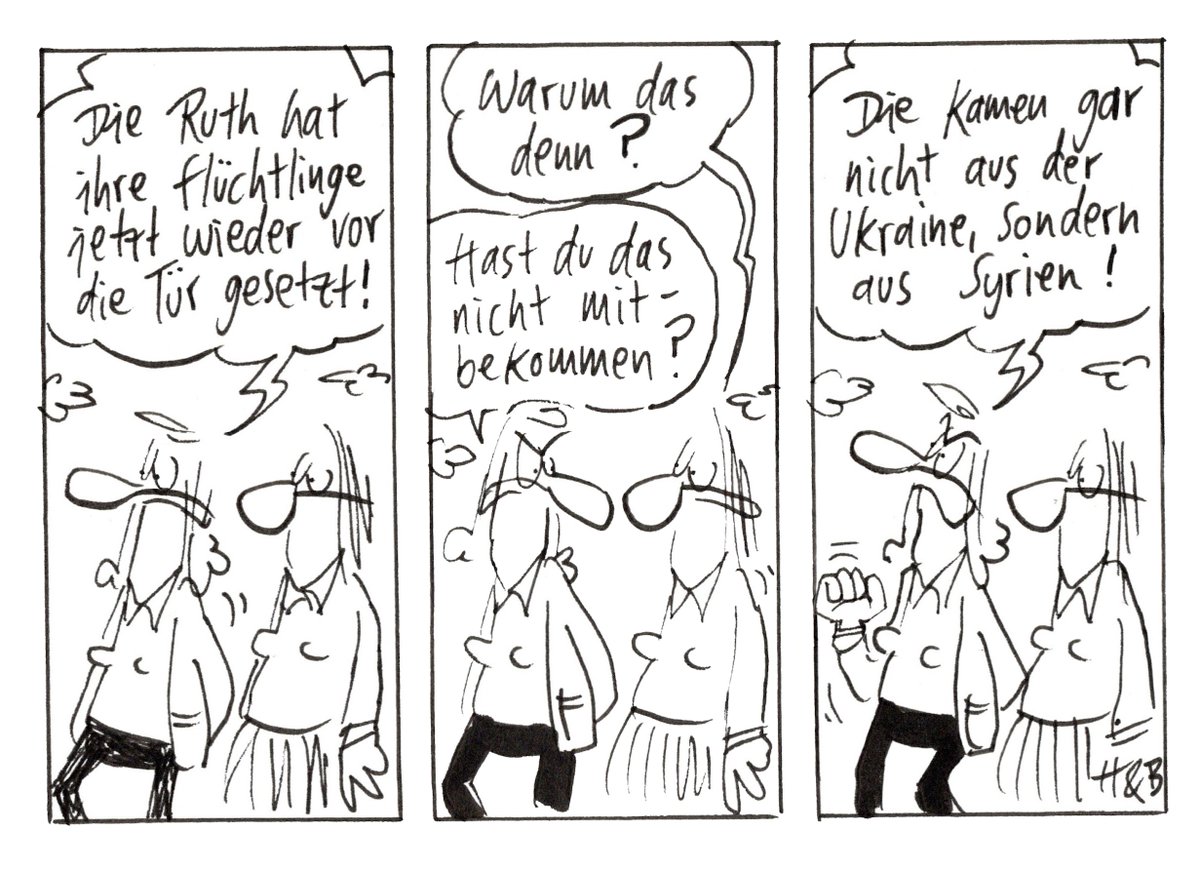 Die Ruth hat
ihre Flüchtlinge
jetzt wieder vor
die Tür gesetzt!
Warum das
denn?
Hast du das
nicht mit-
bekommen?
Die kamen gar
nicht aus der
Ukraine, sondern
aus Syrien!
H&B